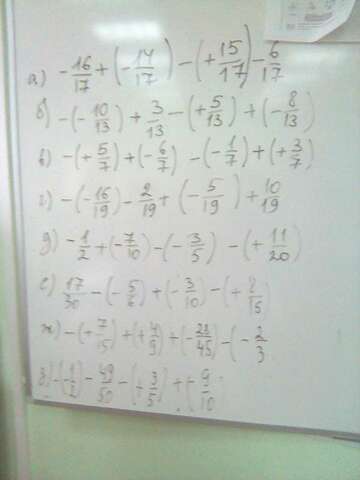 а) -16/17 + (-14/17) - (+15/17) - 6/17
б) -(-10/13) + 3/13 - (+5/13) + (-8/13)
в) -(+5/7) + (-6/7) - (-1/7) + (+3/7)
г) -(-16/19) - 2/19 + (-5/19) + 10/19
д) -1/2 + (-7/10) - (-3/5) - (+11/20)
е) 17/30 - (-5/6) + (-3/10) - (+8/15)
ж) -(+7/15) + (+4/9) + (-28/45) - (-2/3
з) -(-1/2) - 49/50 - (+3/5) + (-9/10